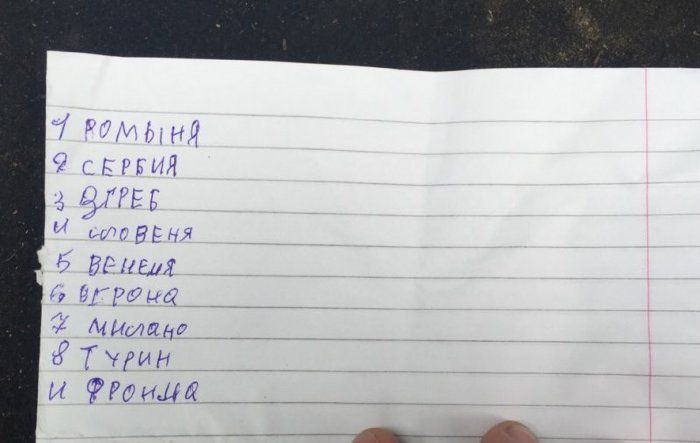 1 РОМЫНЯ
2 СЕРБИЯ
3 ЗГРЕБ
4 словЕНЯ
5 ВЕНЕЦЯ
6 ВЕРОНА
7 милано
8 ТУРИН
4 ФРОНЦА